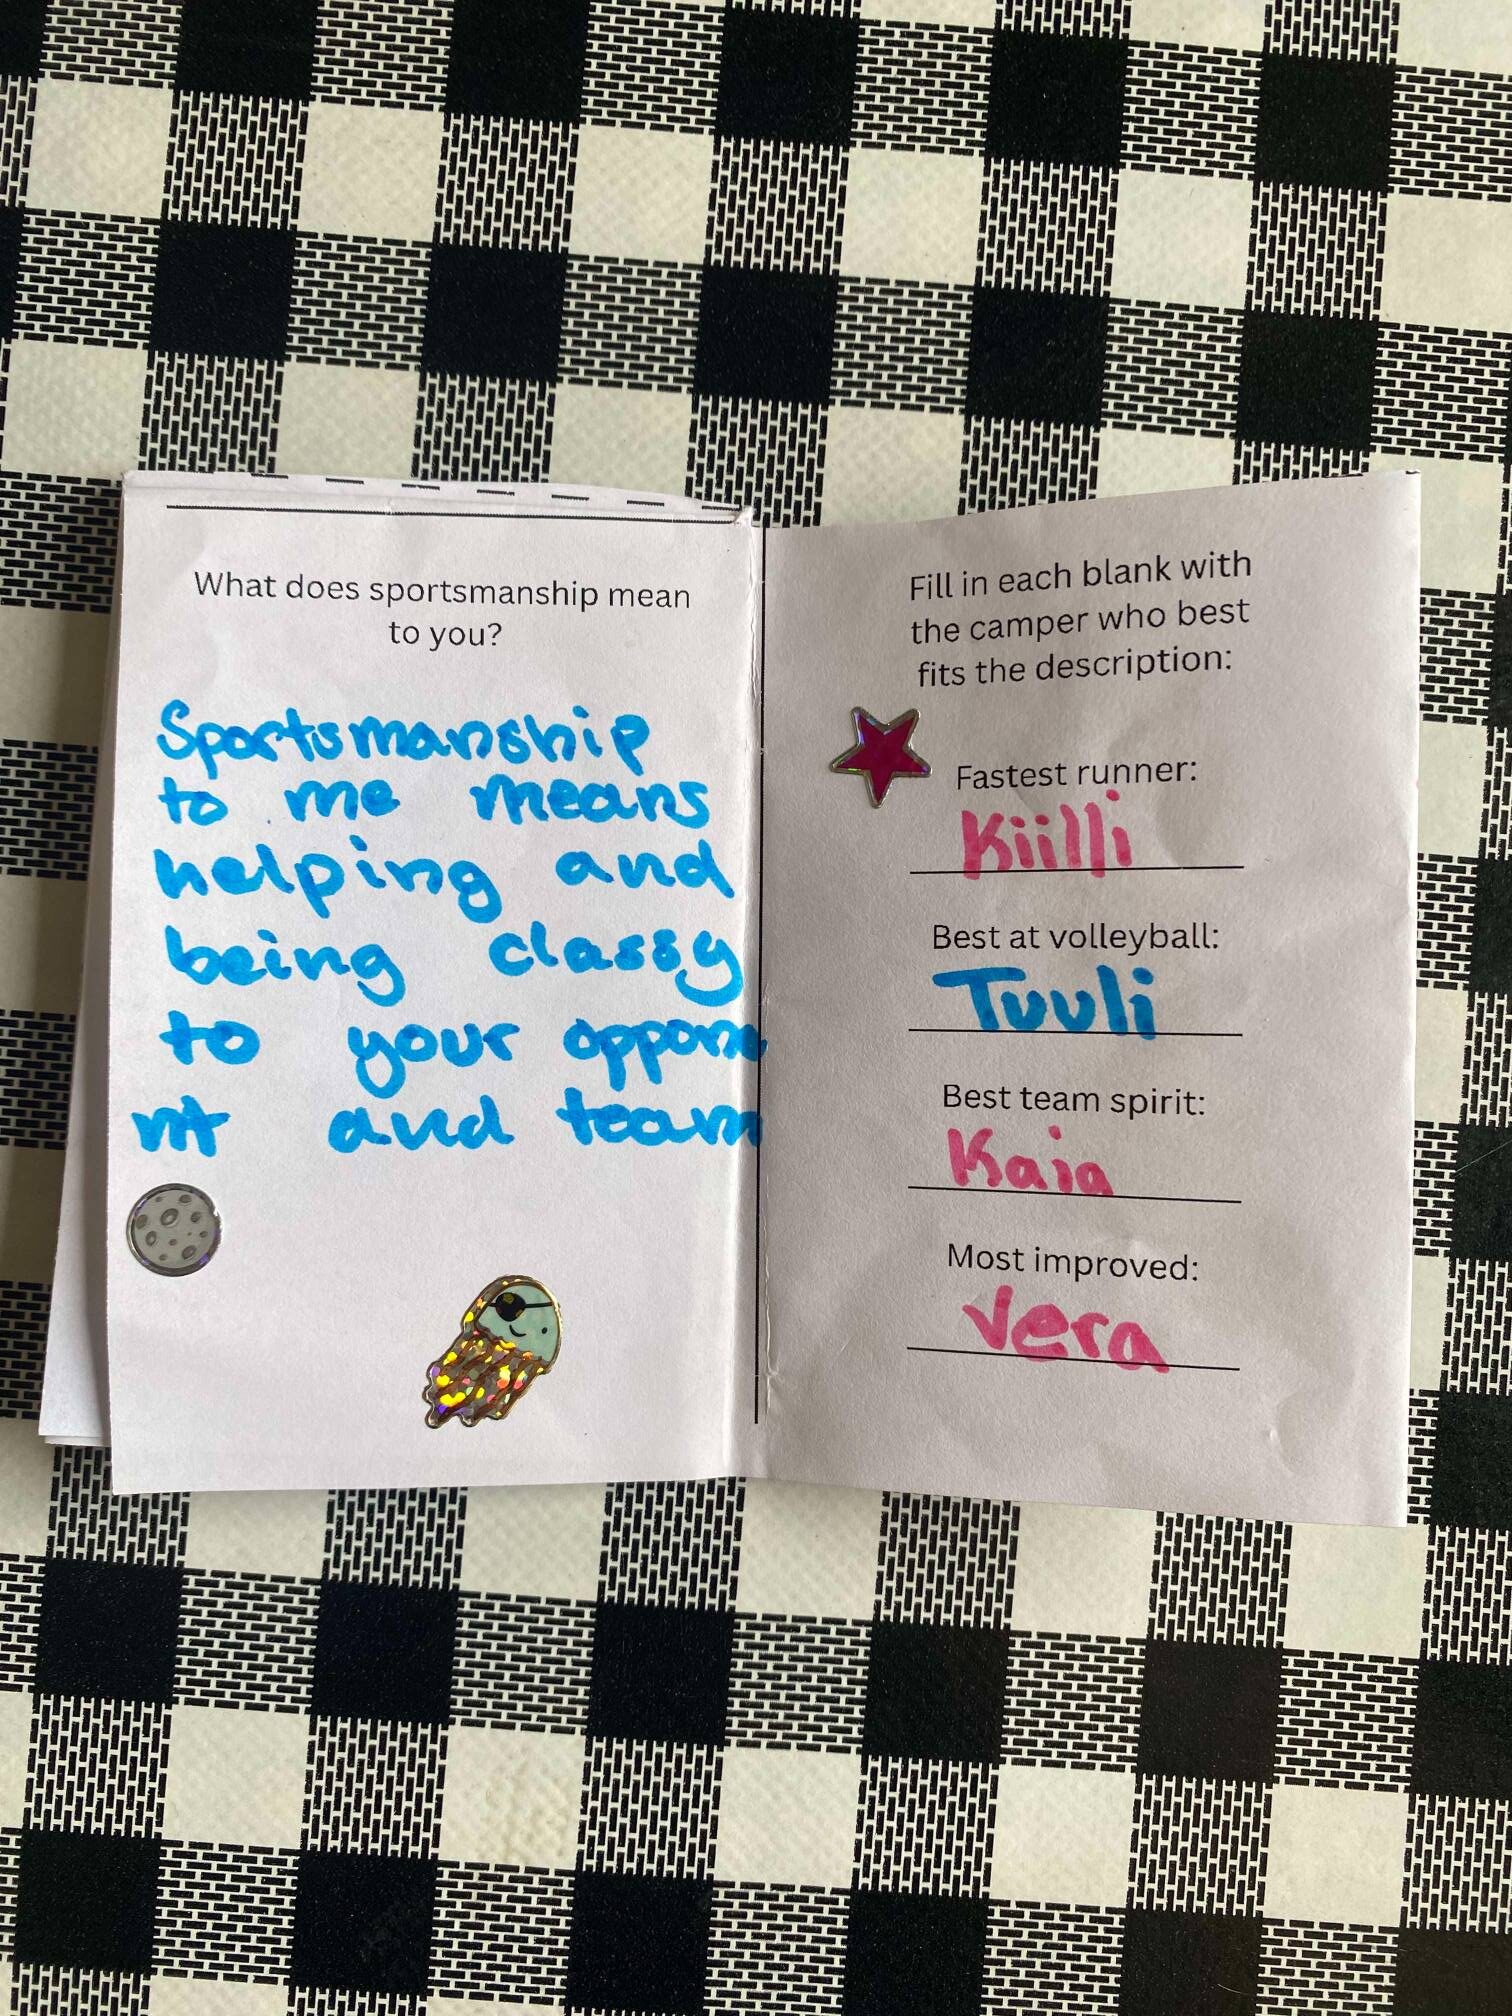 What does sportsmanship mean
to you?
Sportsmanship
to me means
helping and
being classy
to your oppone
nt and team
Fill in each blank with
the camper who best
fits the description:
Fastest runner:
Kiilli
Best at volleyball:
Tuuli
Best team spirit:
Kaia
Most improved:
Vera